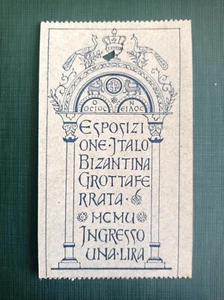 ESPOSIZI
ONE · ITALO
BIZANTINA
GROTTAFE
RRATA ·
· MCMV ·
INGRESSO
UNA · LIRA